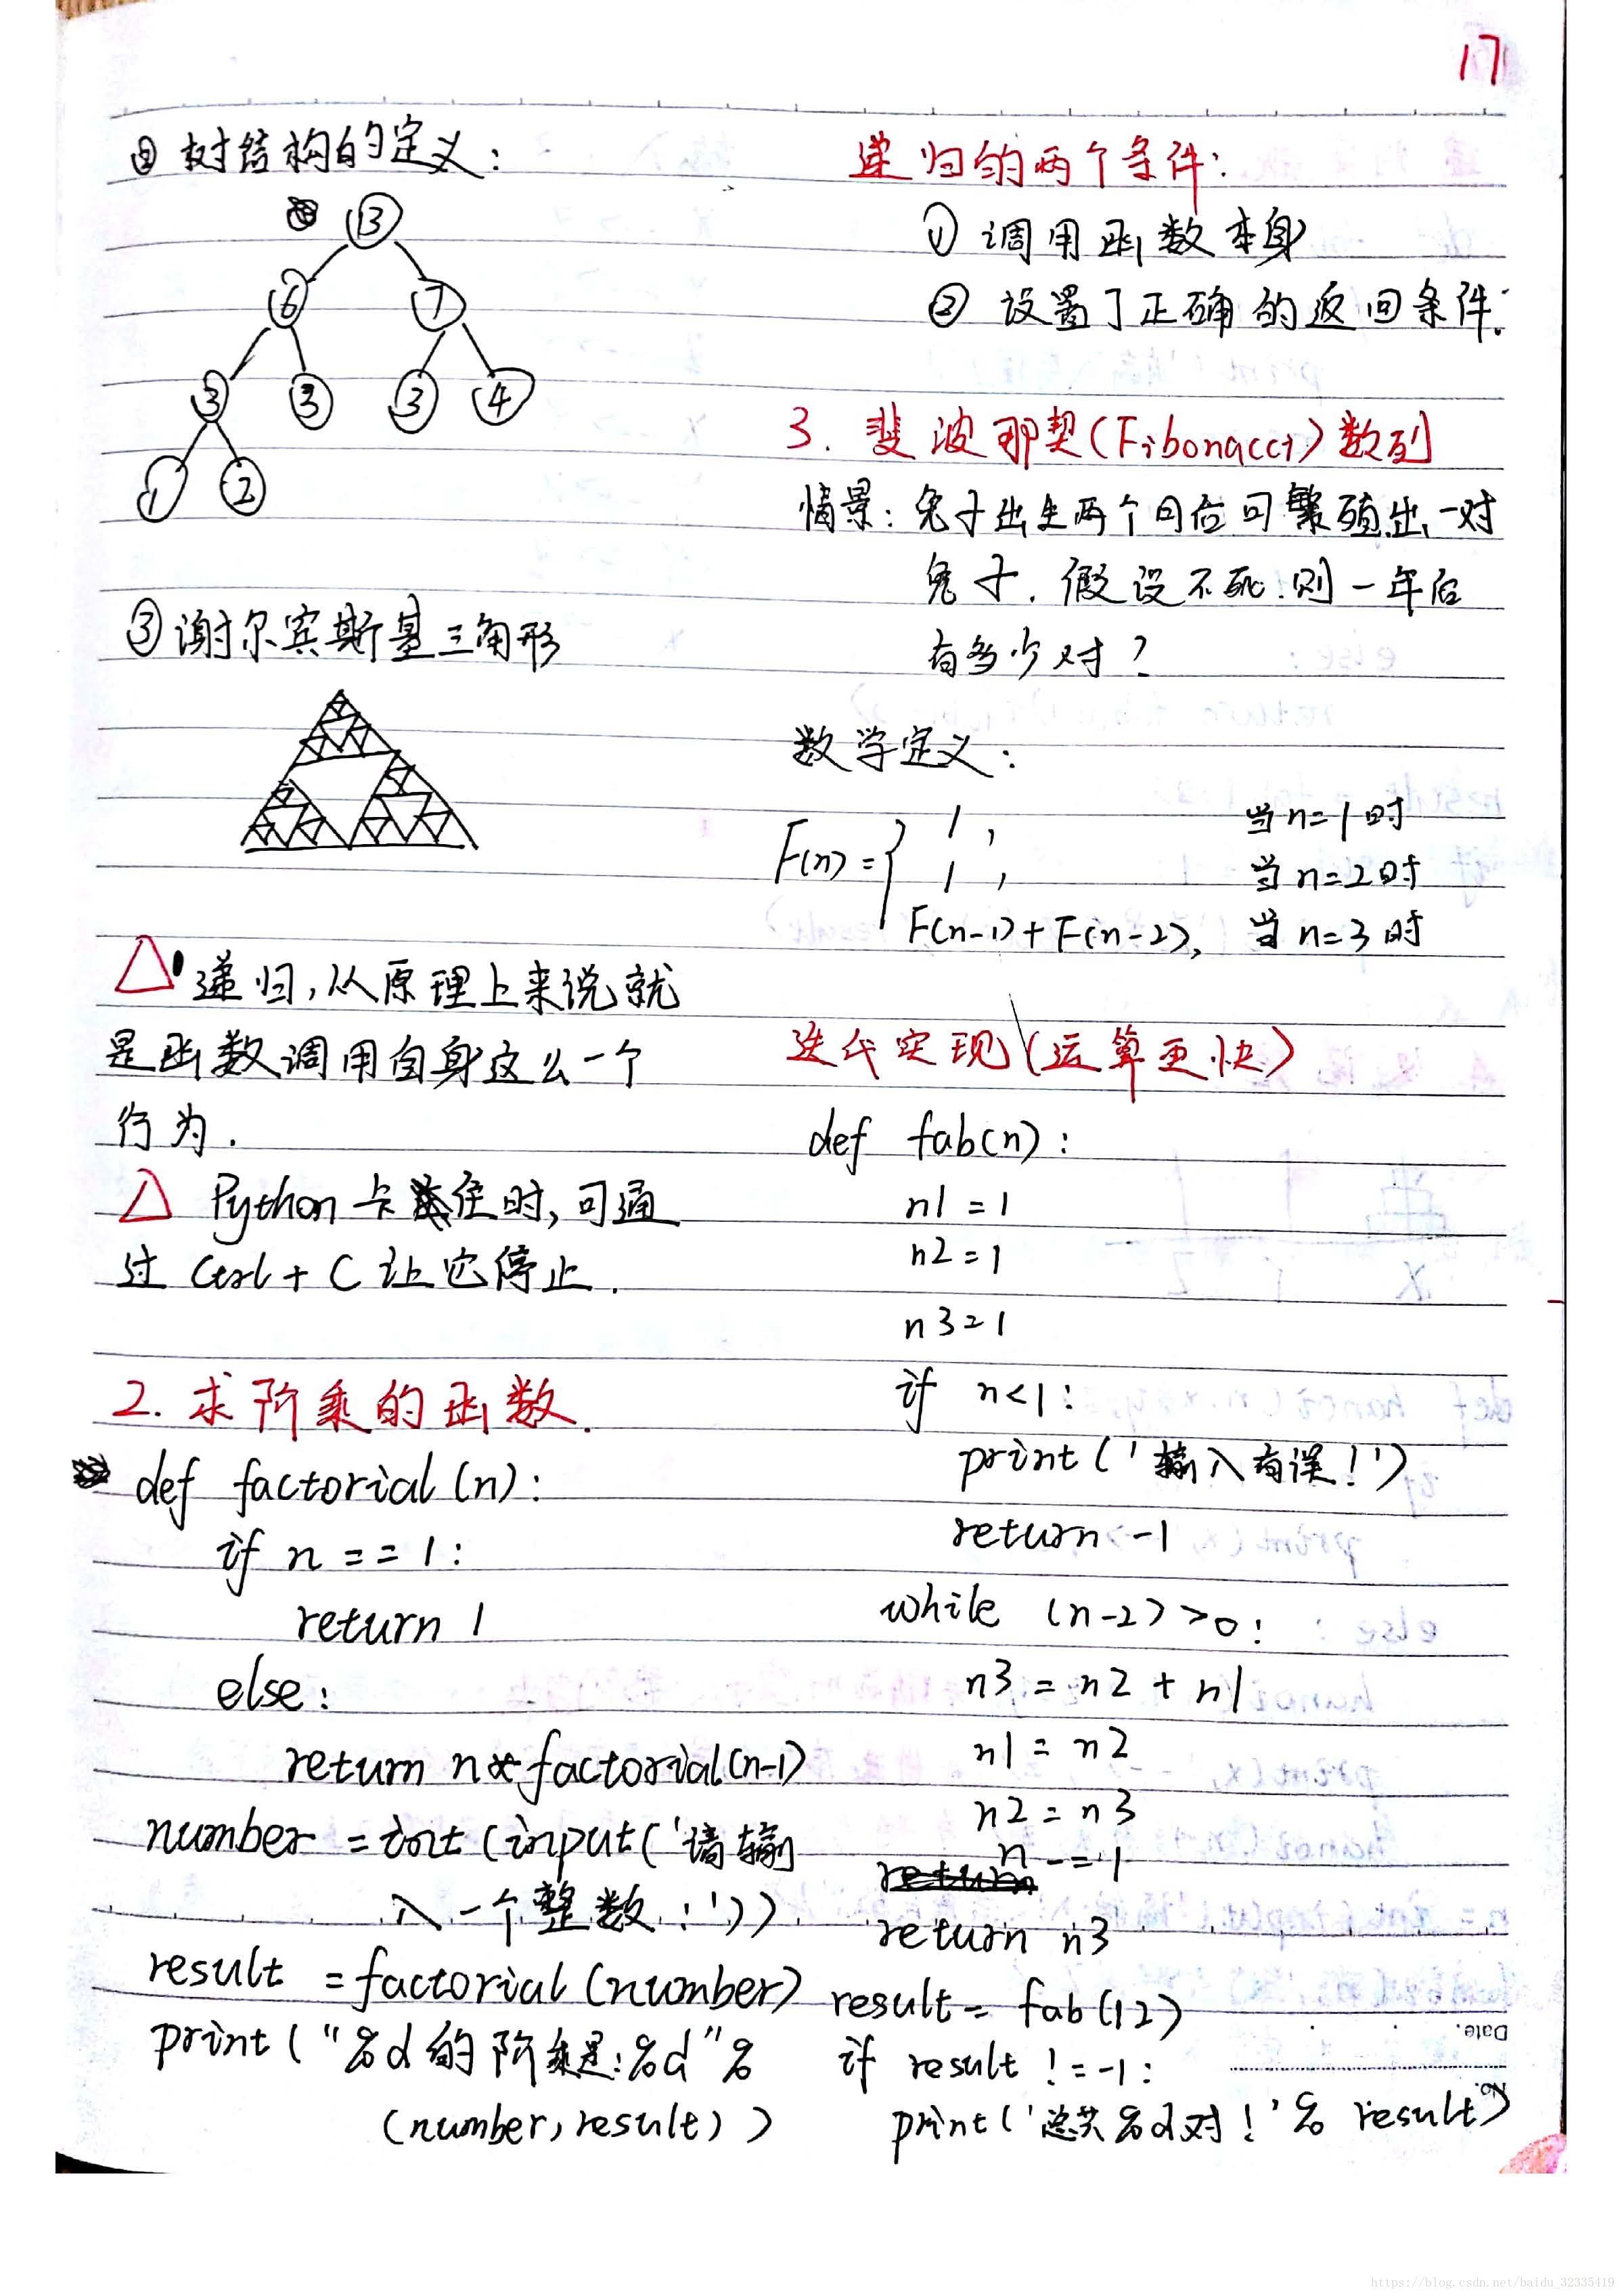 17
② 树结构的定义：
13
6 7
3 3 3 4
1 2
③ 谢尔宾斯基三角形
△ 递归,从原理上来说就
是函数调用自身这么一个
行为.
△ Python 卡住时,可通
过 Ctrl + C 让它停止.
2. 求阶乘的函数.
def factorial(n):
if n == 1:
return 1
else:
return n * factorial(n-1)
number = int(input('请输
入一个整数:'))
result = factorial(number)
print("%d的阶乘是:%d"%
(number,result))
递归的两个条件:
① 调用函数本身
② 设置了正确的返回条件.
3. 斐波那契(Fibonacci)数列
情景: 兔子出生两个月后可繁殖出一对
兔子. 假设不死.则一年后
有多少对?
数学定义:
F(n)={ 1, 当n=1时
1, 当n=2时
F(n-1)+F(n-2), 当n=3时
迭代实现(运算更快)
def fab(n):
n1 = 1
n2 = 1
n3=1
if n<1:
print('输入有误!')
return -1
while (n-2)>0:
n3 = n2 + n1
n1 = n2
n2 = n3
n -= 1
return n3
result = fab(12)
if result != -1:
print('总共%d对!'% result)
Date.
No.
https://blog.csdn.net/baidu_32335419